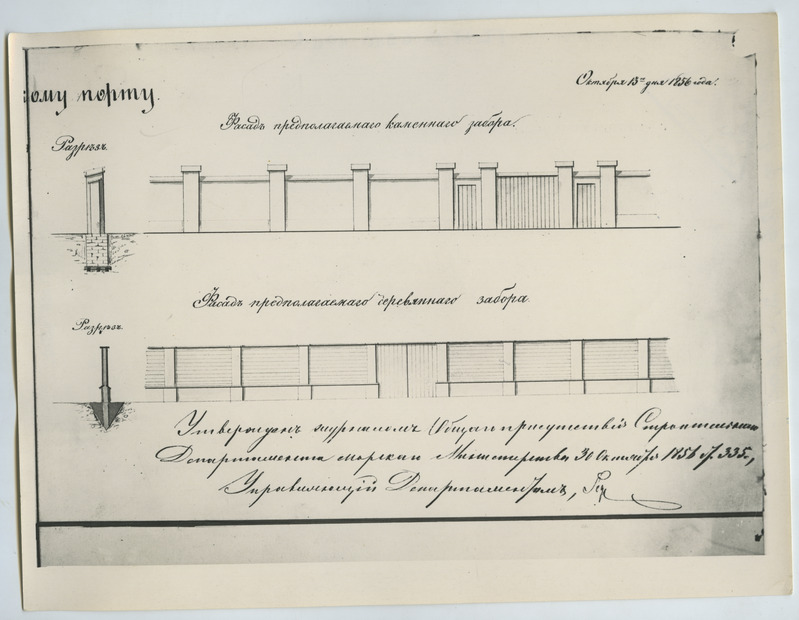 ому порту.
Октября 13го дня 1856 года.
Фасадъ предполагаемаго каменнаго забора.
Разрѣзъ.
Фасадъ предполагаемаго деревяннаго забора.
Разрѣзъ.
Утвержденъ журналомъ Общаго присутствія Строительнаго
Департамента Морскаго Министерства 30 Октября 1856 № 335,
Управляющій Департаментомъ,